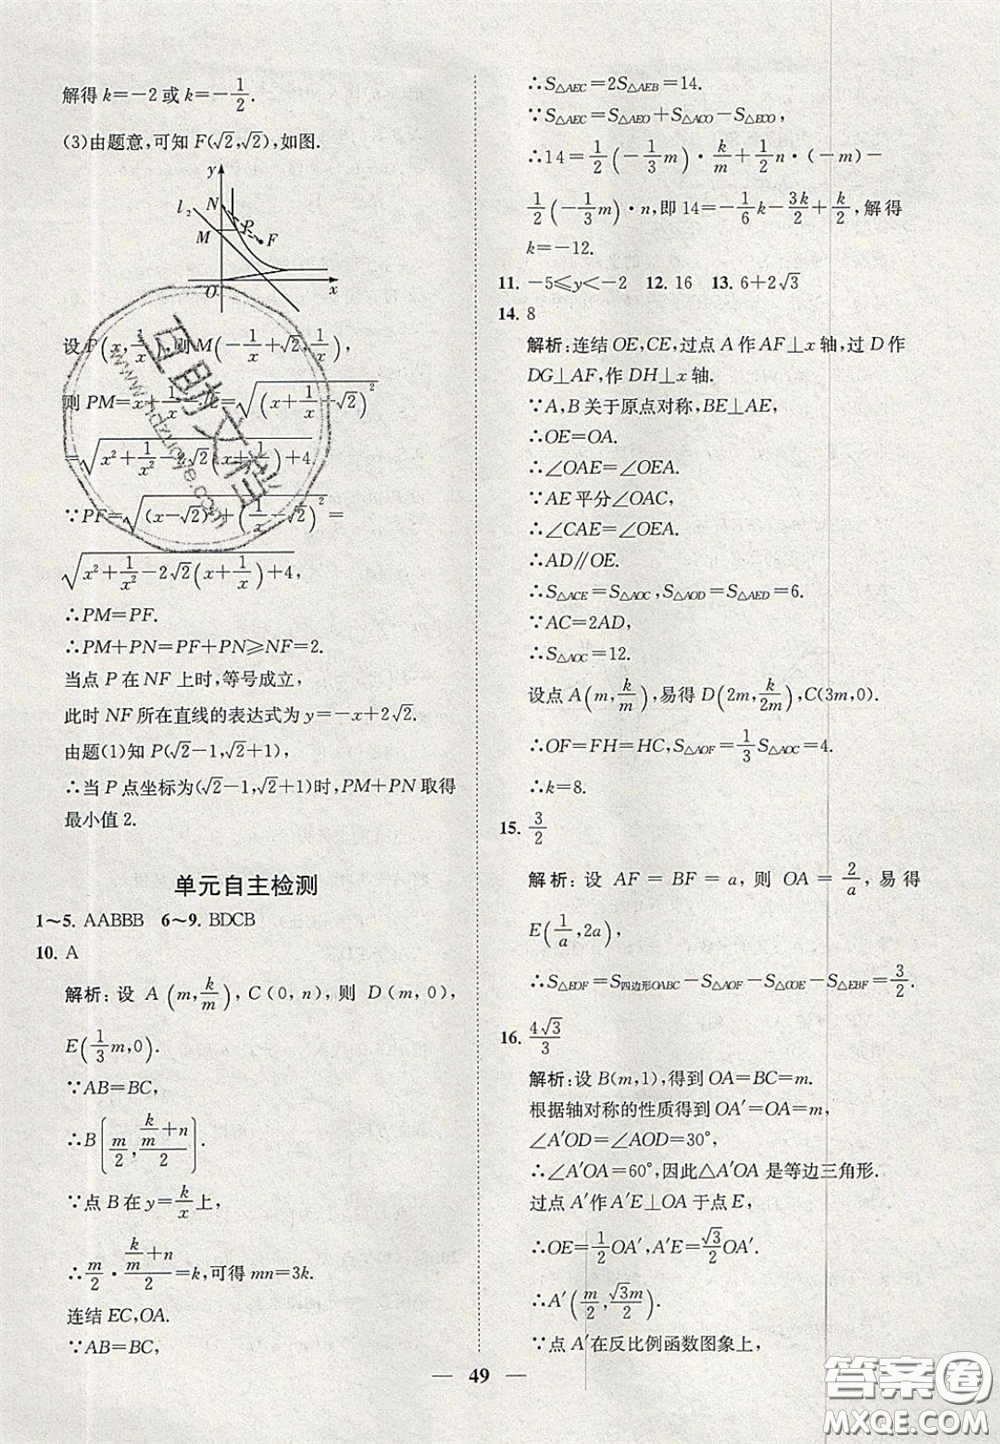 解得 k=−2 或 k=−1/2.
(3)由题意，可知 F(√2,√2),如图.
y
l₂
N
P
M
F
O
x
设 P(x,1/x),则 M(−1/x+√2,1/x),
则 PM=x+1/x−√2=√((x+1/x−√2)²)
=√(x²+1/x²−2√2(x+1/x)+4).
∵PF=√((x−√2)²+(1/x−√2)²)=
√(x²+1/x²−2√2(x+1/x)+4),
∴PM=PF.
∴PM+PN=PF+PN≥NF=2.
当点 P 在 NF 上时,等号成立,
此时 NF 所在直线的表达式为 y=−x+2√2.
由题(1)知 P(√2−1,√2+1),
∴当 P 点坐标为(√2−1,√2+1)时,PM+PN 取得
最小值 2.
单元自主检测
1~5. AABBB 6~9. BDCB
10. A
解析:设 A(m,k/m),C(0,n),则 D(m,0),
E(1/3m,0).
∵AB=BC,
∴B[m/2,(k/m+n)/2].
∵点 B 在 y=k/x 上,
∴m/2·(k/m+n)/2=k,可得 mn=3k.
连结 EC,OA.
∵AB=BC,
∴S△AEC=2S△AEB=14.
∵S△AEC=S△AEO+S△ACO−S△ECO,
∴14=1/2(−1/3m)·k/m+1/2n·(−m)−
1/2(−1/3m)·n,即 14=−1/6k−3k/2+k/2,解得
k=−12.
11. −5≤y<−2 12. 16 13. 6+2√3
14. 8
解析:连结 OE,CE,过点 A 作 AF⊥x 轴,过 D 作
DG⊥AF,作 DH⊥x 轴.
∵A,B 关于原点对称,BE⊥AE,
∴OE=OA.
∴∠OAE=∠OEA.
∵AE 平分∠OAC,
∴∠CAE=∠OEA.
∴AD∥OE.
∴S△ACE=S△AOC,S△AOD=S△AED=6.
∵AC=2AD,
∴S△AOC=12.
设点 A(m,k/m),易得 D(2m,k/2m),C(3m,0).
∴OF=FH=HC,S△AOF=1/3S△AOC=4.
∴k=8.
15. 3/2
解析:设 AF=BF=a,则 OA=2/a,易得
E(1/a,2a),
∴S△EOF=S四边形OABC−S△AOF−S△COE−S△EBF=3/2.
16. 4√3/3
解析:设 B(m,1),得到 OA=BC=m.
根据轴对称的性质得到 OA′=OA=m,
∠A′OD=∠AOD=30°,
∴∠A′OA=60°,因此△A′OA 是等边三角形.
过点 A′作 A′E⊥OA 于点 E,
∴OE=1/2OA′,A′E=√3/2OA′.
∴A′(m/2,√3m/2).
∵点 A′在反比例函数图象上,
— 49 —
互助文档
www.hdzuoye.com
答案圈
MXQE.COM